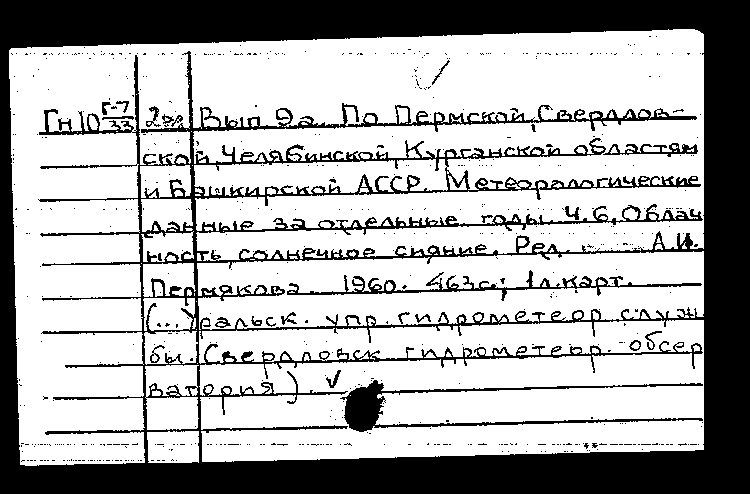 Гн10 Г-7/33 2эк Вып 9а. По Пермской, Свердлов-
ской, Челябинской, Курганской областям
и Башкирской АССР. Метеорологические
данные за отдельные годы. Ч.6, Облач
ность, солнечное сияние. Ред. А.И.
Пермякова. 1960. 463с.; 1л.карт.
(...Уральск. упр. гидрометеор служ
бы. Свердловск гидрометеор. обсер
ватория).